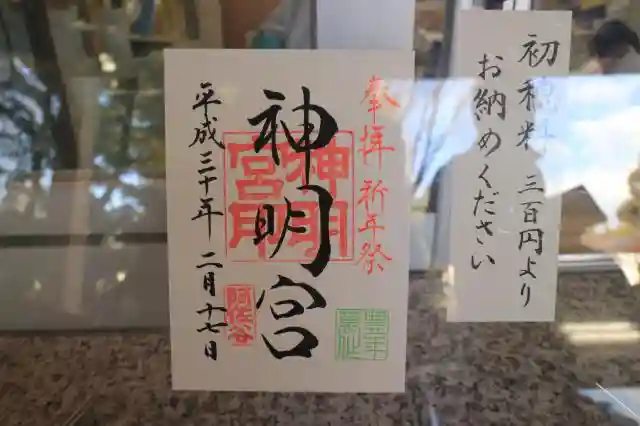 初穂料 三百円より
お納めください
奉拝 祈年祭
神明宮
神明宮印
平成三十年 二月十七日
阿佐谷
豊年
萬作